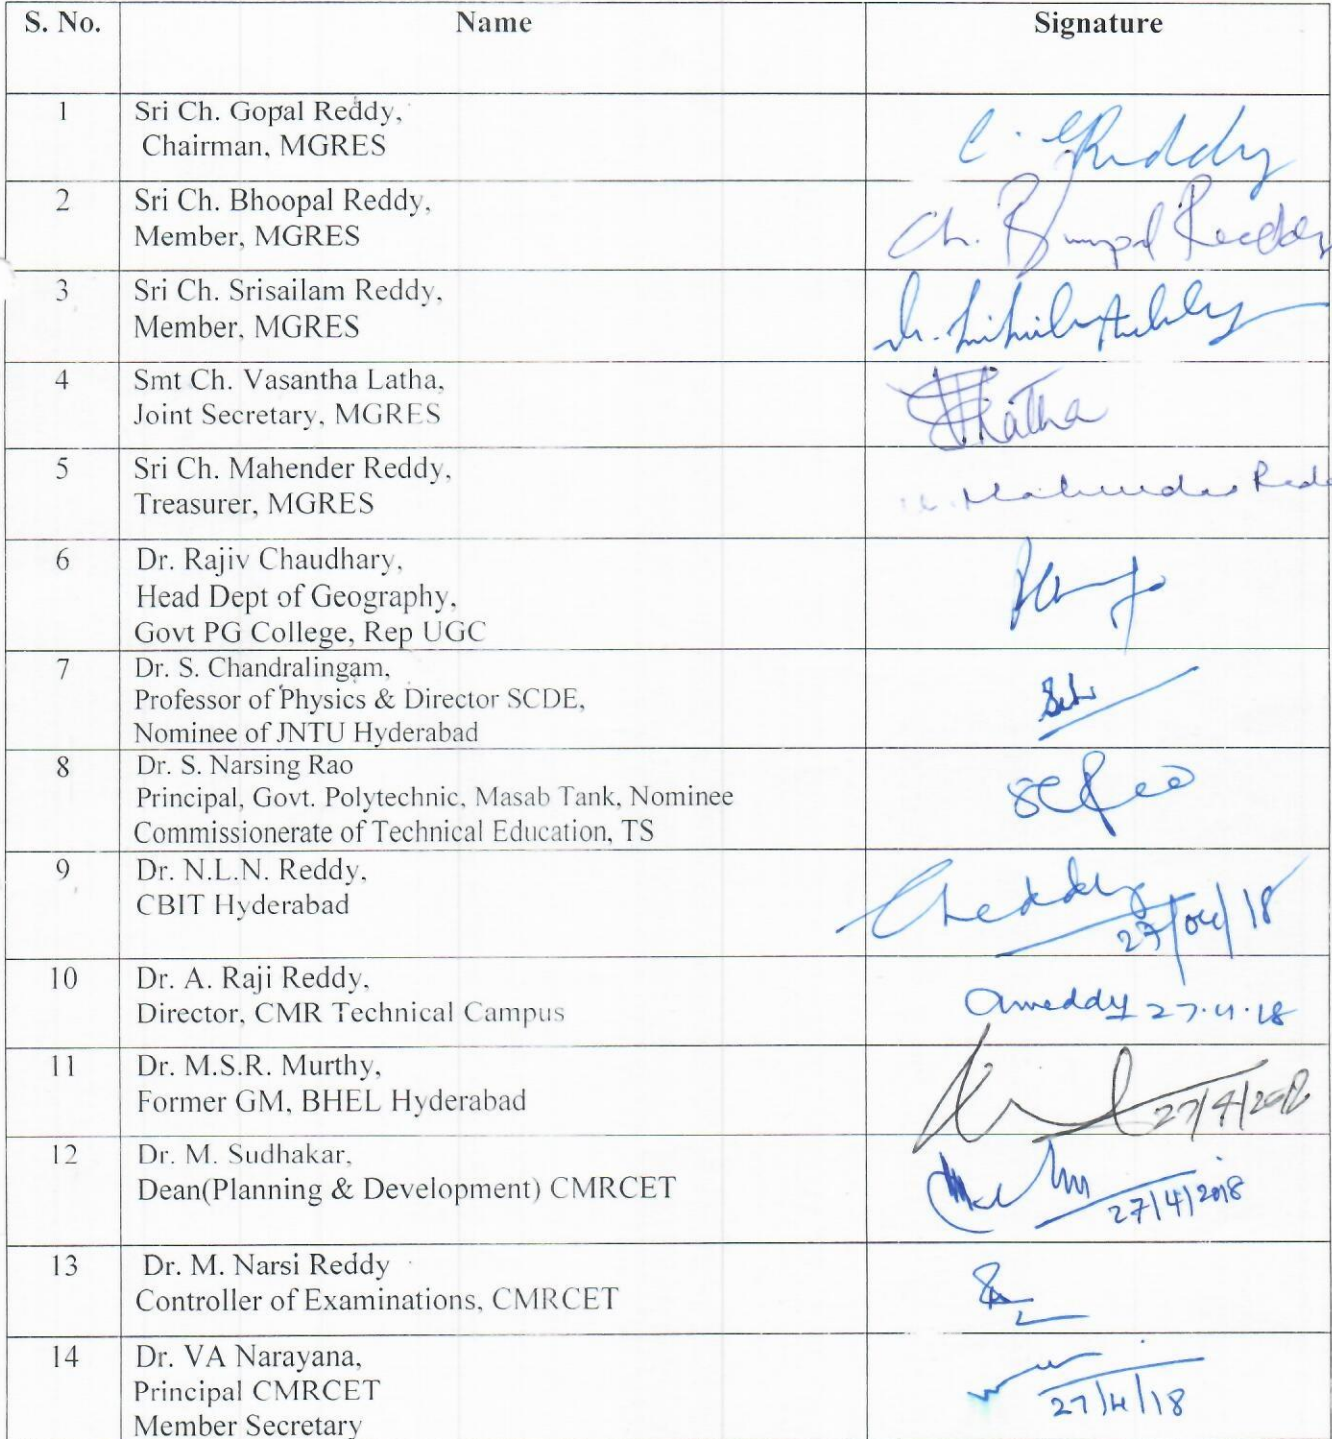 S. No. Name Signature
1 Sri Ch. Gopal Reddy,
Chairman, MGRES
C. GReddy
2 Sri Ch. Bhoopal Reddy,
Member, MGRES
Ch. Bhoopal Reddy
3 Sri Ch. Srisailam Reddy,
Member, MGRES
4 Smt Ch. Vasantha Latha,
Joint Secretary, MGRES
Latha
5 Sri Ch. Mahender Reddy,
Treasurer, MGRES
Mahender Redd
6 Dr. Rajiv Chaudhary,
Head Dept of Geography,
Govt PG College, Rep UGC
7 Dr. S. Chandralingam,
Professor of Physics & Director SCDE,
Nominee of JNTU Hyderabad
8 Dr. S. Narsing Rao
Principal, Govt. Polytechnic, Masab Tank, Nominee
Commissionerate of Technical Education, TS
9 Dr. N.L.N. Reddy,
CBIT Hyderabad
27/04/18
10 Dr. A. Raji Reddy,
Director, CMR Technical Campus
27.4.18
11 Dr. M.S.R. Murthy,
Former GM, BHEL Hyderabad
27/4/2018
12 Dr. M. Sudhakar,
Dean(Planning & Development) CMRCET
27/4/2018
13 Dr. M. Narsi Reddy
Controller of Examinations, CMRCET
14 Dr. VA Narayana,
Principal CMRCET
Member Secretary
27/4/18